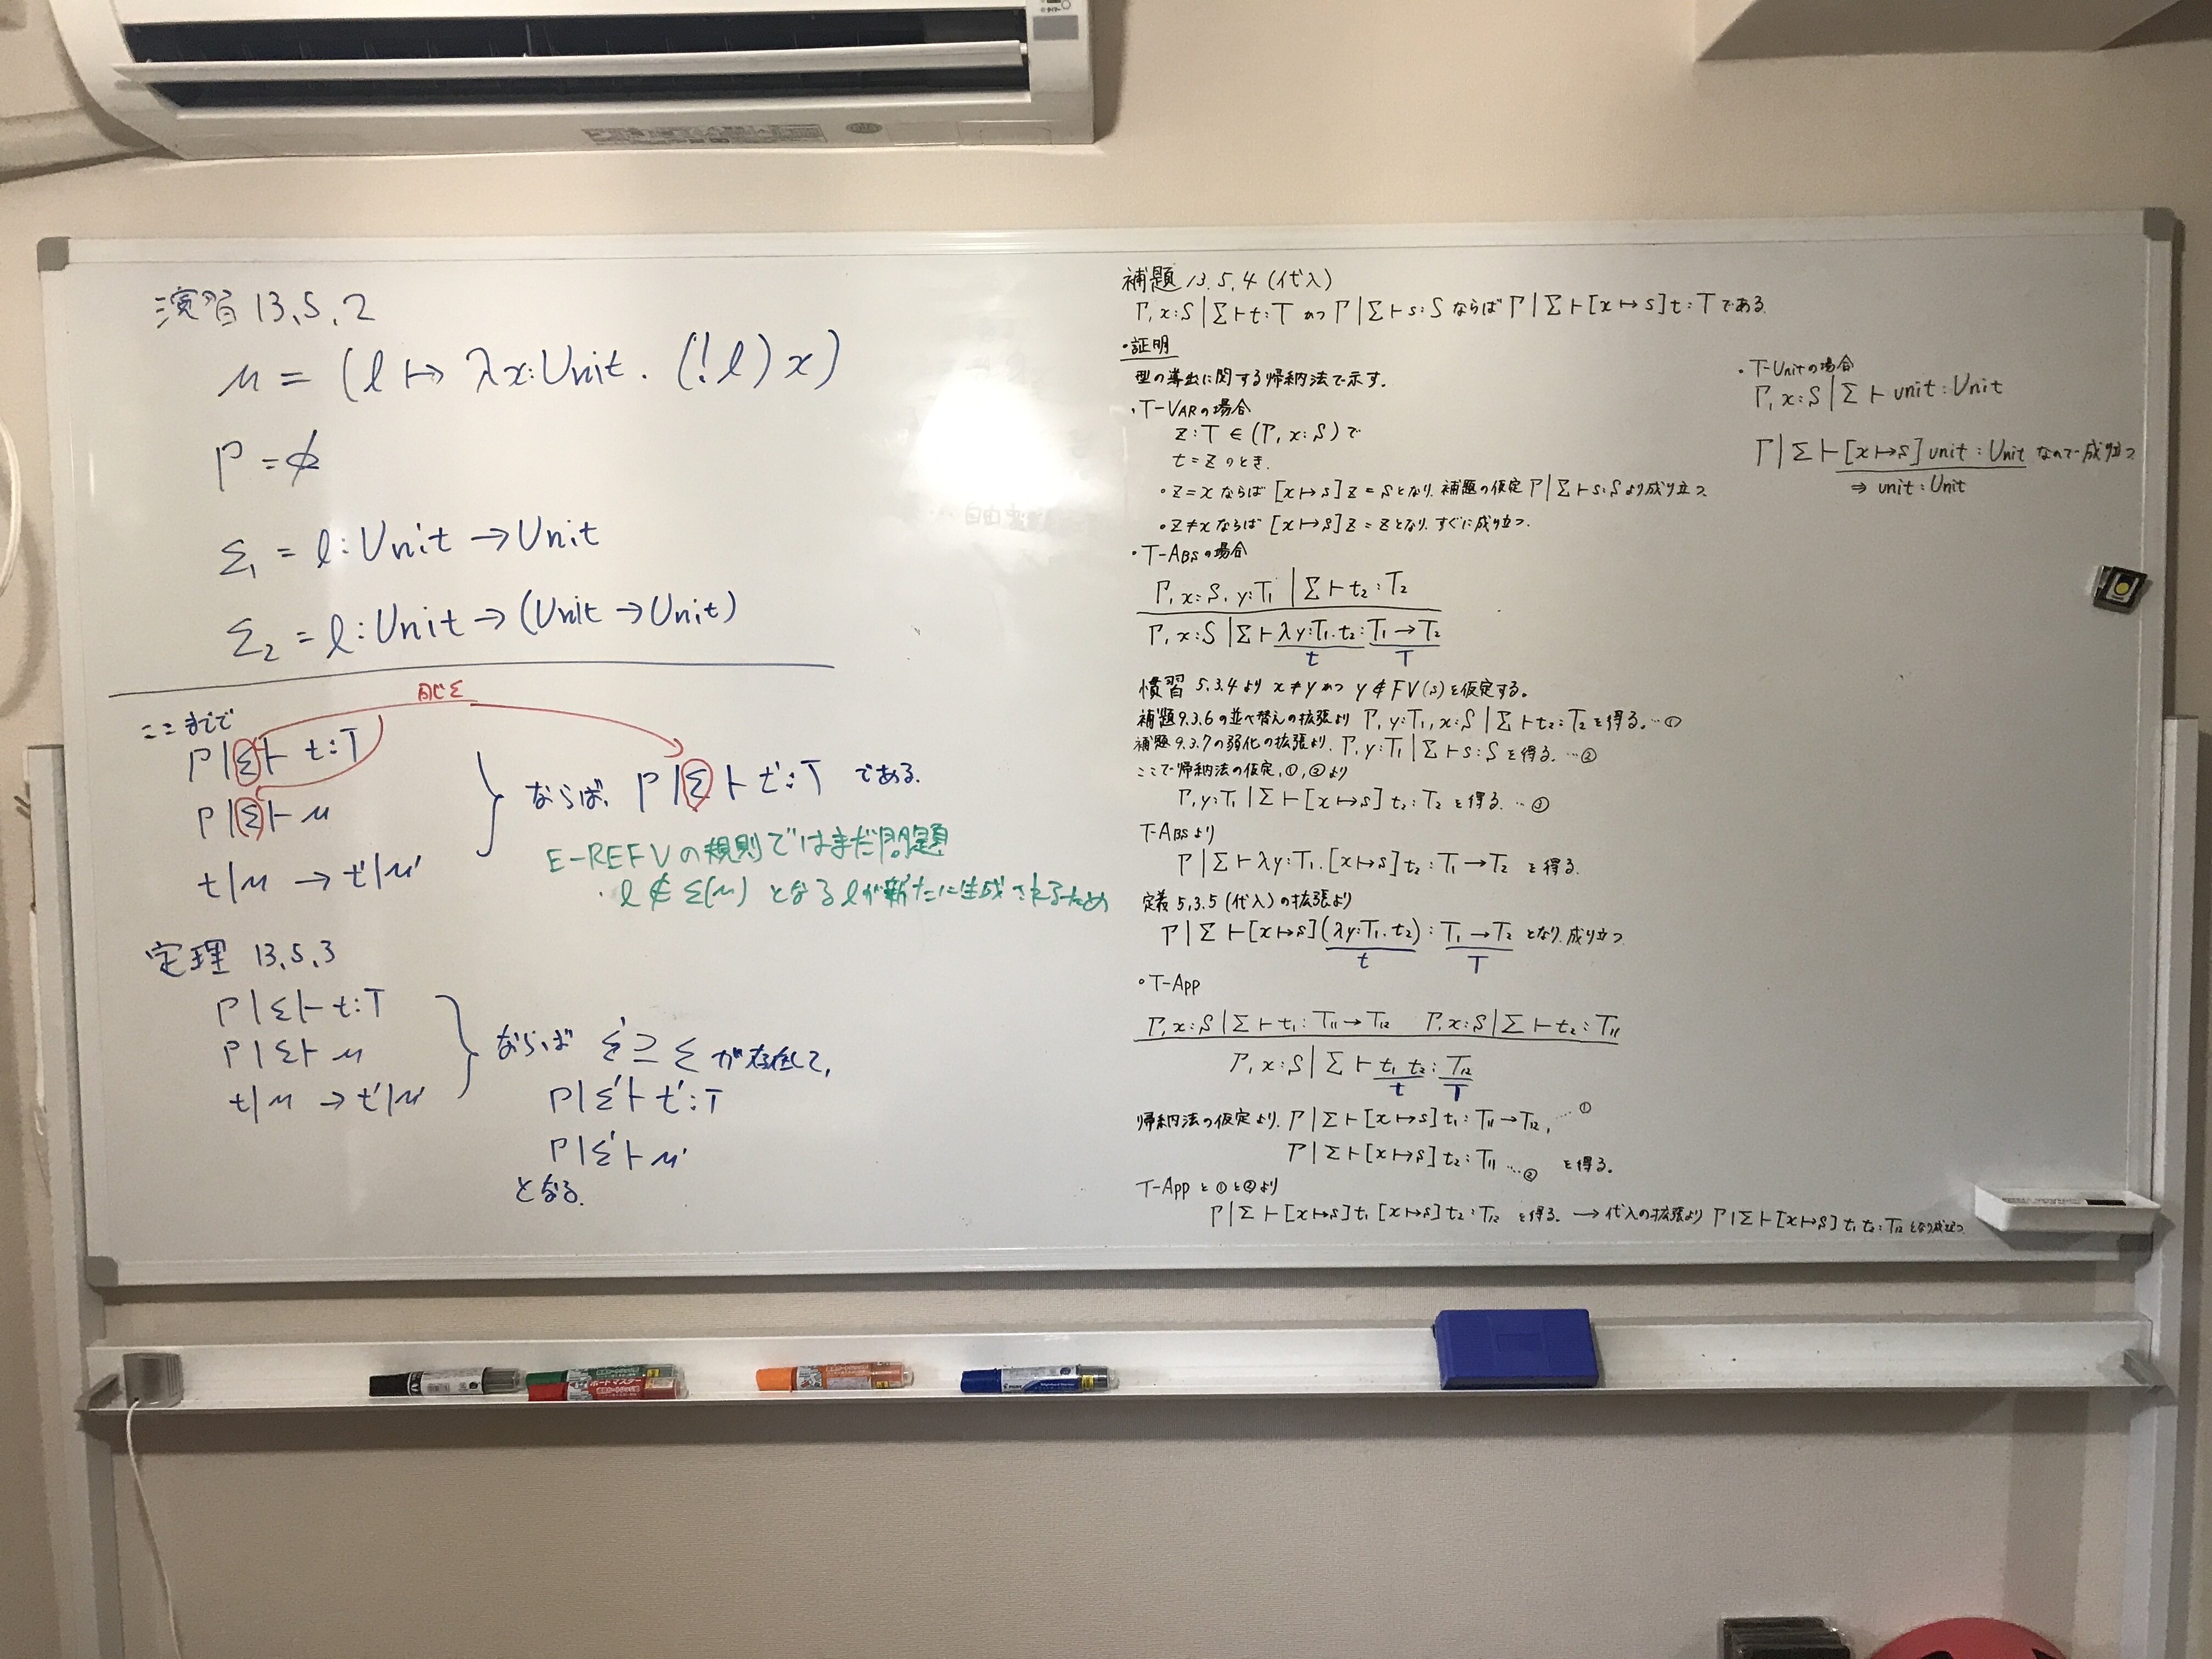 演習 13.5.2
μ = (l ↦ λx:Unit. (!l) x)
Γ = ∅
Σ₁ = l : Unit → Unit
Σ₂ = l : Unit → (Unit → Unit)
同じΣ
ここまでで
Γ|Σ ⊢ t : T
Γ|Σ ⊢ μ
t|μ → t'|μ'
ならば、Γ|Σ ⊢ t' : T である.
E-REFVの規則ではまだ問題
・l ∉ Σ(μ) となる l が新たに生成されるため
定理 13.5.3
Γ|Σ ⊢ t : T
Γ|Σ ⊢ μ
t|μ → t'|μ'
ならば Σ' ⊇ Σ が存在して,
Γ|Σ' ⊢ t' : T
Γ|Σ' ⊢ μ'
となる.
補題 13.5.4 (代入)
Γ, x:S | Σ ⊢ t : T かつ Γ | Σ ⊢ s : S ならば Γ | Σ ⊢ [x ↦ s] t : T である.
・証明
型の導出に関する帰納法で示す.
・T-VARの場合
z : T ∈ (Γ, x : S) で
t = z のとき.
・z = x ならば [x ↦ s] z = s となり. 補題の仮定 Γ | Σ ⊢ s : S より成り立つ
・z ≠ x ならば [x ↦ s] z = z となり. すぐに成り立つ.
・T-ABSの場合
Γ, x : S, y : T₁ | Σ ⊢ t₂ : T₂
Γ, x : S | Σ ⊢ λy:T₁. t₂ : T₁ → T₂
t T
慣習 5.3.4 より x ≠ y かつ y ∉ FV(s) を仮定する.
補題9.3.6の並べ替えの拡張より Γ, y:T₁, x:S | Σ ⊢ t₂ : T₂ を得る. …①
補題9.3.7の弱化の拡張より. Γ, y:T₁ | Σ ⊢ s : S を得る. …②
ここで帰納法の仮定, ①, ②より
Γ, y:T₁ | Σ ⊢ [x ↦ s] t₂ : T₂ を得る. …③
T-ABSより
Γ | Σ ⊢ λy:T₁. [x ↦ s] t₂ : T₁ → T₂ を得る.
定義 5.3.5 (代入) の拡張より
Γ | Σ ⊢ [x ↦ s] (λy:T₁. t₂) : T₁ → T₂ となり. 成り立つ
t T
・T-App
Γ, x:S | Σ ⊢ t₁ : T₁₁ → T₁₂ Γ, x:S | Σ ⊢ t₂ : T₁₁
Γ, x:S | Σ ⊢ t₁ t₂ : T₁₂
t T
帰納法の仮定より. Γ | Σ ⊢ [x ↦ s] t₁ : T₁₁ → T₁₂, …①
Γ | Σ ⊢ [x ↦ s] t₂ : T₁₁ …② を得る.
T-App と①と②より
Γ | Σ ⊢ [x ↦ s] t₁ [x ↦ s] t₂ : T₁₂ を得る. → 代入の拡張より Γ | Σ ⊢ [x ↦ s] t₁ t₂ : T₁₂ となり成立つ
・T-Unitの場合
Γ, x : S | Σ ⊢ unit : Unit
Γ | Σ ⊢ [x ↦ s] unit : Unit なので成り立つ
⇒ unit : Unit